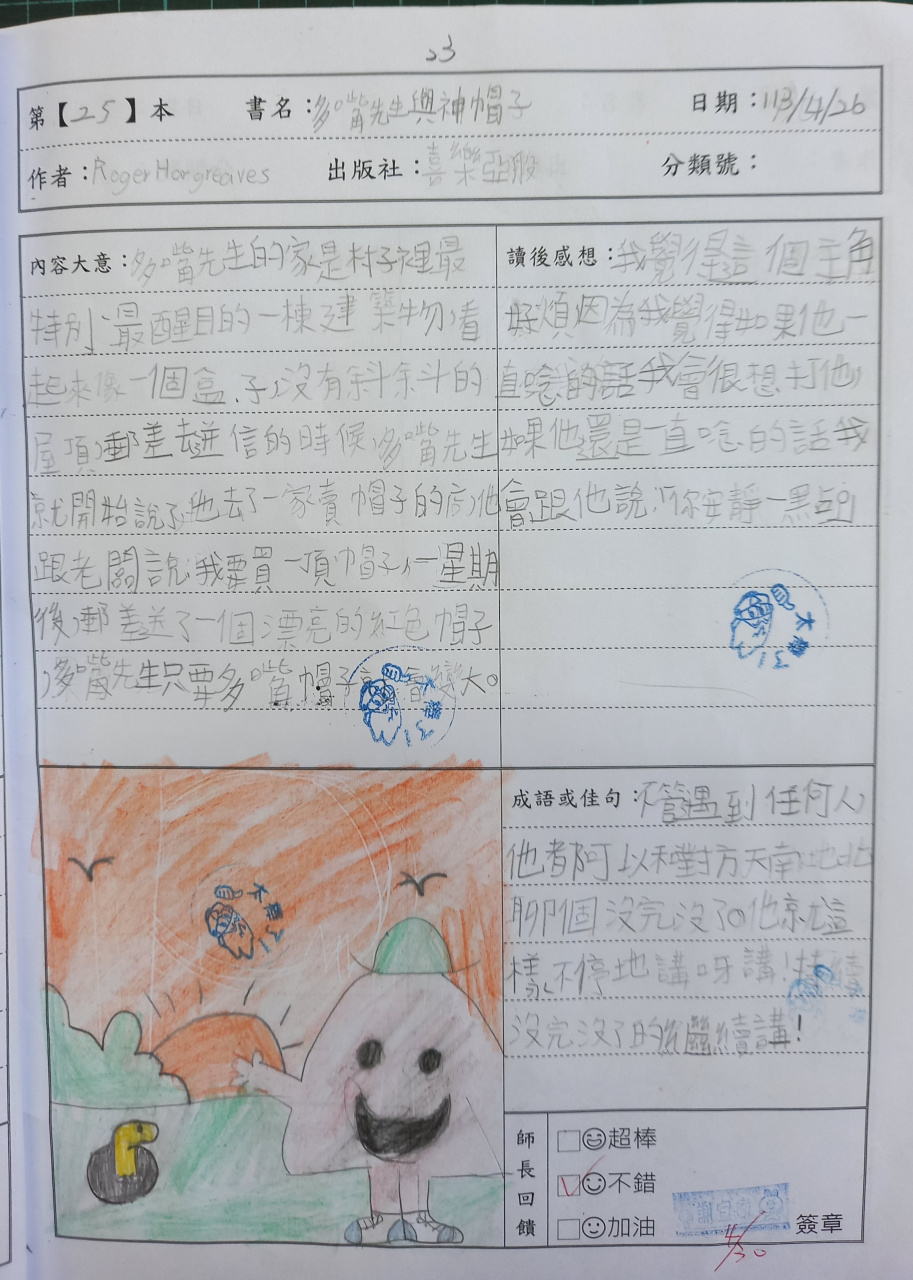 23
第【25】本 書名：多嘴先生與神帽子 日期：113/4/26
作者：Roger Hargreaves 出版社：喜樂亞股 分類號：
內容大意：多嘴先生的家是村子裡最
特別，最醒目的一棟建築物，看
起來像一個盒子，沒有斜斜的
屋頂，郵差去送信的時候，多嘴先生
就開始說了，他去了一家賣帽子的店，他
跟老闆說：我要買一頂帽子，一星期
後，郵差送了一個漂亮的紅色帽子
，多嘴先生只要多嘴帽子會變大。
讀後感想：我覺得這個主角
好煩因為我覺得如果他一
直唸的話我會很想打他，
如果他還是一直唸的話我
會跟他說：「你安靜一點
太棒31
太棒31
太棒31
成語或佳句：不管遇到任何人，
他都可以和對方天南地北
聊個沒完沒了。他就這
樣，不停地講呀講！持續
沒完沒了的繼續講！
師長回饋
超棒
V 不錯
加油
簽章
4/30